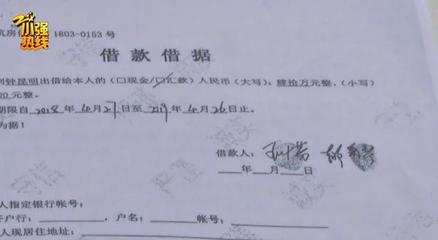 小强热线
1803-0153 号
借款借据
钟昆明出借给本人的(口现金/口汇款)人民币(大写):肆拾万元整,(小写)
00 元整。
期限自2018年4月27日至2019年4月26日止。
为据!
借款人:
年 月 日
人指定银行帐号:
户行: ,户名: 帐号:
人现居住地址: